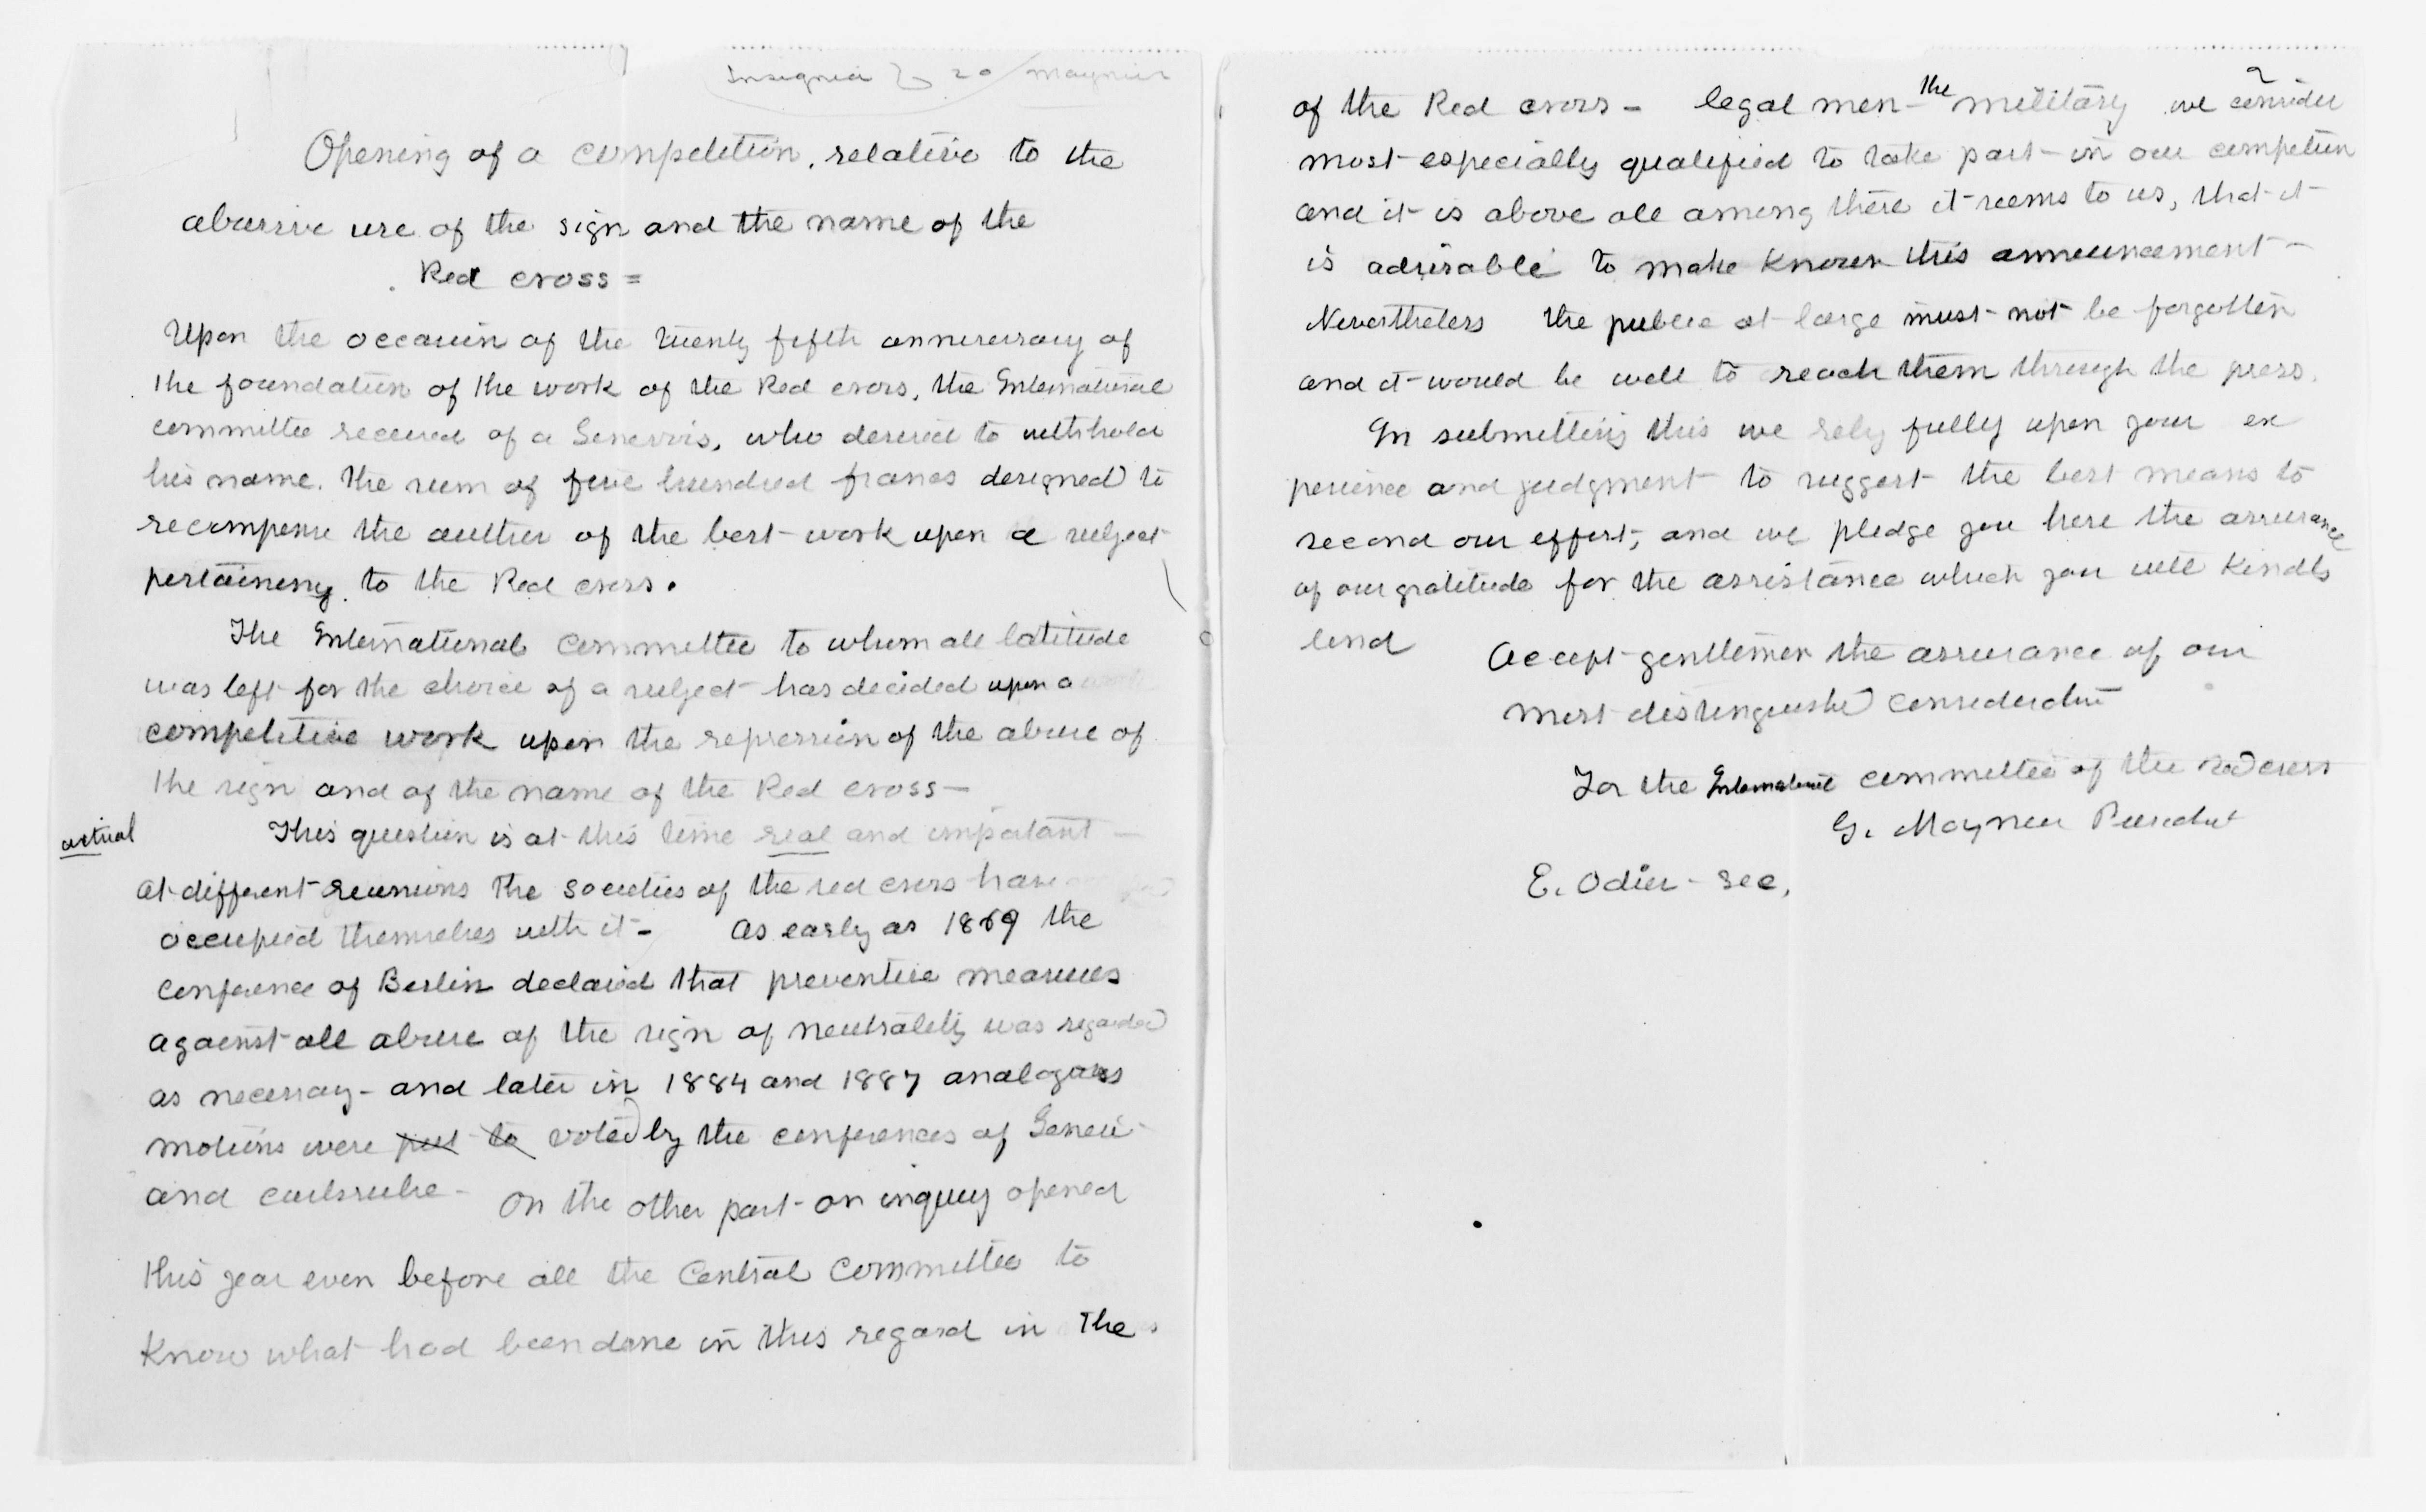 Insignia 20 Moynier
Opening of a competition, relative to the
abusive use of the sign and the name of the
Red cross =
Upon the occasion of the twenty fifth anniversary of
the foundation of the work of the Red cross, the International
committee received of a Genevois, who desired to withhold
his name, the sum of five hundred francs designed to
recompense the author of the best work upon a subject
pertaining to the Red cross.
The International committee to whom all latitude
was left for the choice of a subject has decided upon a
competitive work upon the repression of the abuse of
the sign and of the name of the Red cross —
actual This question is at this time real and important —
at different reunions the societies of the red cross have
occupied themselves with it - As early as 1869 the
conference of Berlin declared that preventive measures
against all abuse of the sign of neutrality was regarded
as necessary - and later in 1884 and 1887 analogous
motions were put to voted by the conferences of Geneva
and Carlsruhe - On the other part - an inquiry opened
this year even before all the Central Committee to
know what had been done in this regard in the
of the Red cross - legal men - the military we consider
most especially qualified to take part in our competition
and it is above all among there it seems to us, that it
is advisable to make known this announcement -
Nevertheless the public at large must not be forgotten
and it would be well to reach them through the press.
In submitting this we rely fully upon your ex
perience and judgment to suggest the best means to
second our effort, and we pledge you here the assurance
of our gratitude for the assistance which you will kindly
lend Accept gentlemen the assurance of our
most distinguished consideration
For the International committee of the red cross
G. Moynier President
E. Odier - Sec.